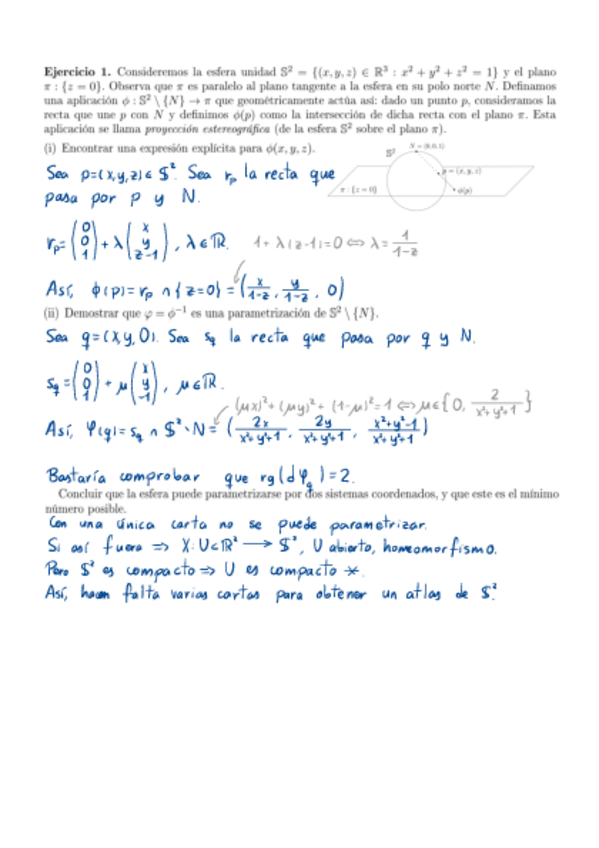 Ejercicio 1. Consideremos la esfera unidad 𝕊² = {(x, y, z) ∈ ℝ³ : x² + y² + z² = 1} y el plano
π : {z = 0}. Observa que π es paralelo al plano tangente a la esfera en su polo norte N. Definamos
una aplicación ϕ : 𝕊² \ {N} → π que geométricamente actúa así: dado un punto p, consideramos la
recta que une p con N y definimos ϕ(p) como la intersección de dicha recta con el plano π. Esta
aplicación se llama proyección estereográfica (de la esfera 𝕊² sobre el plano π).
(i) Encontrar una expresión explícita para ϕ(x, y, z).
𝕊² N = (0, 0, 1)
p = (x, y, z)
π : {z = 0} ϕ(p)
Sea p=(x,y,z)∈ 𝕊². Sea r_p la recta que
pasa por p y N.
r_p = (0 0 1) + λ (x y z-1), λ∈ℝ. 1 + λ(z-1)=0 ⇔ λ = 1/(1-z)
Así, ϕ(p)= r_p ∩ {z=0} = (x/(1-z), y/(1-z), 0)
(ii) Demostrar que φ = ϕ⁻¹ es una parametrización de 𝕊² \ {N}.
Sea q=(x,y,0). Sea s_q la recta que pasa por q y N.
s_q = (0 0 1) + μ (x y -1), μ∈ℝ.
(μx)² + (μy)² + (1-μ)² = 1 ⇔ μ∈{0, 2/(x²+y²+1)}
Así, φ(q)= s_q ∩ 𝕊²∖N = (2x/(x²+y²+1), 2y/(x²+y²+1), (x²+y²-1)/(x²+y²+1))
Bastaría comprobar que rg(dφ_q)=2.
Concluir que la esfera puede parametrizarse por dos sistemas coordenados, y que este es el mínimo
número posible.
Con una única carta no se puede parametrizar.
Si así fuera ⇒ X: U⊂ℝ² → 𝕊², U abierto, homeomorfismo.
Pero 𝕊² es compacto ⇒ U es compacto ⚹.
Así, hacen falta varias cartas para obtener un atlas de 𝕊².